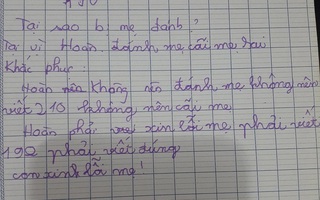 Tại sao bị mẹ đánh?
Tại vì Hoan đánh mẹ cãi mẹ sai
Khắc phục:
Hoan nữa không nên đánh mẹ không nên
viết 210 không nên cãi mẹ
Hoan phải xin lỗi mẹ phải viết
192 phải viết đúng
con xinh lỗi mẹ!